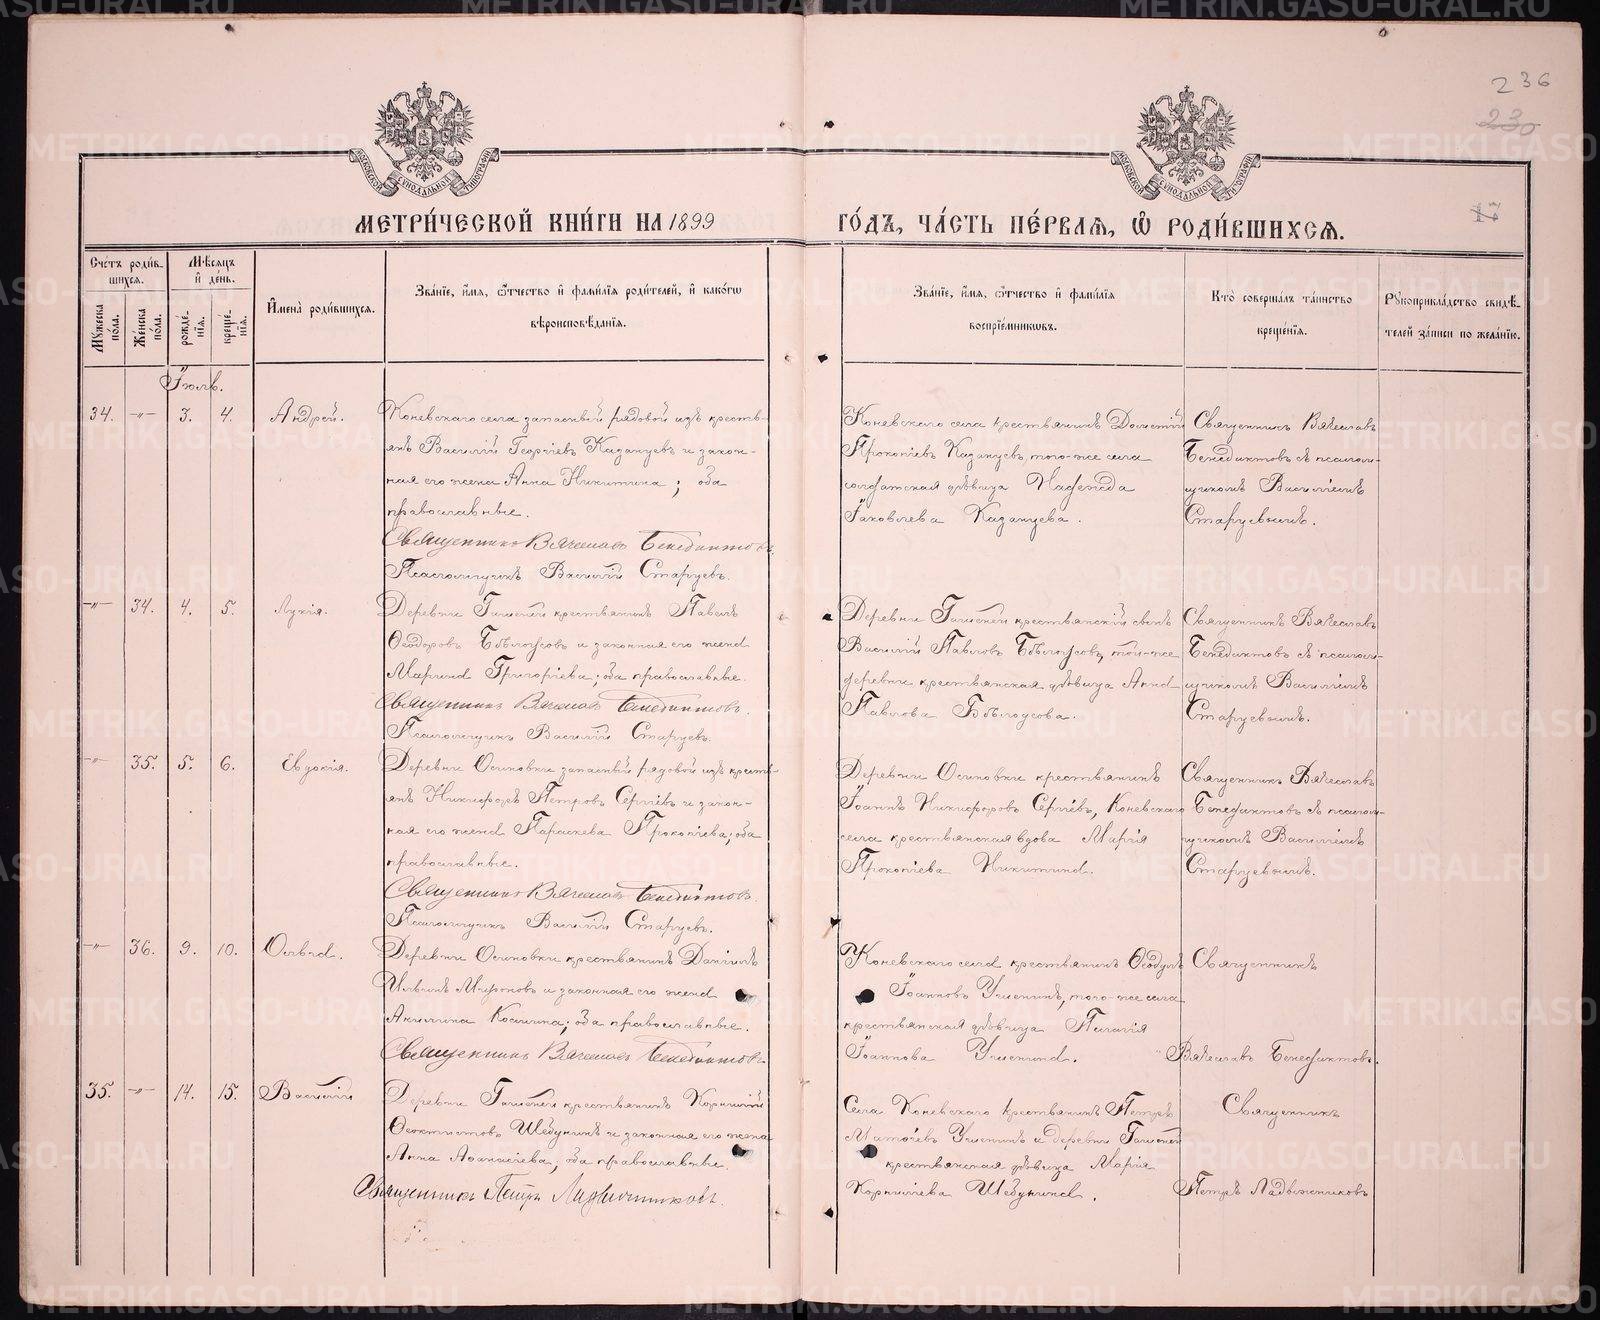 236
230
17
МОСКОВСКОЙ СѴНОДАЛЬНОЙ ТИПОГРАФІИ
МОСКОВСКОЙ СѴНОДАЛЬНОЙ ТИПОГРАФІИ
МЕТРИ́ЧЕСКОЙ КНИ́ГИ НА 1899
ГО́ДЪ, ЧА́СТЬ ПЕ́РВАѦ, Ѽ РОДИ́ВШИХСѦ.
Сче́тъ роди́в-
шихсѧ.
Мꙋжеска по́ла.
Же́нска по́ла.
Мѣ́сѧцъ
и҆ де́нь.
рожде́-
нїѧ.
креще́-
нїѧ.
И҆мена̀ роди́вшихсѧ.
Зва́нїе, и҆́мѧ, ѻ҆́тчество и҆ фами́лїѧ роди́телей, и҆ како́гѡ
вѣроисповѣ́данїѧ.
Зва́нїе, и҆́мѧ, ѻ҆́тчество и҆ фами́лїѧ
воспрїе́мникѡвъ.
Кто̀ соверша́лъ та́инство
креще́нїѧ.
Рꙋкоприкла́дство свидѣ́-
телей за́писи по жела́нїю.
Іюль.
34. —"— 3. 4. Андрей.
Коневскаго села запасный рядовой изъ кресть-
янъ Василій Георгіевъ Казанцевъ и закон-
ная его жена Анна Никитина; оба
православные.
Священникъ Вячеславъ Бенедиктовъ.
Псаломщикъ Василій Старцевъ.
Коневскаго села крестьянинъ Дометій
Прокопіевъ Казанцевъ, того-же села
солдатская дѣвица Надежда
Іаковлева Казанцева.
Священникъ Вячеславъ
Бенедиктовъ съ псалом-
щикомъ Василіемъ
Старцевымъ.
—"— 34. 4. 5. Лукія.
Деревни крестьянинъ Павелъ
Ѳеодоровъ Бѣлоусовъ и законная его жена
Марина Григоріева; оба православные.
Священникъ Вячеславъ Бенедиктовъ.
Псаломщикъ Василій Старцевъ.
Деревни крестьянскій сынъ
Василій Павловъ Бѣлоусовъ, той-же
деревни крестьянская дѣвица Анна
Павлова Бѣлоусова.
Священникъ Вячеславъ
Бенедиктовъ съ псалом-
щикомъ Василіемъ
Старцевымъ.
—"— 35. 5. 6. Евдокія.
Деревни Осиновки запасный рядовой изъ кресть-
янъ Никифоръ Петровъ Сергѣевъ и закон-
ная его жена Параскева Прокопіева; оба
православные.
Священникъ Вячеславъ Бенедиктовъ.
Псаломщикъ Василій Старцевъ.
Деревни Осиновки крестьянинъ
Іоаннъ Никифоровъ Сергѣевъ, Коневскаго
села крестьянская вдова Марія
Прокопіева Никитина.
Священникъ Вячеславъ
Бенедиктовъ съ псалом-
щикомъ Василіемъ
Старцевымъ.
—"— 36. 9. 10. Ольга.
Деревни Осиновки крестьянинъ Даніилъ
Ильинъ Мироновъ и законная его жена
Акилина Козмина; оба православные.
Священникъ Вячеславъ Бенедиктовъ.
Коневскаго села крестьянинъ Ѳеодулъ
Іоанновъ того-же села
крестьянская дѣвица Пелагія
Іоаннова
Священникъ
Вячеславъ Бенедиктовъ.
35. —"— 14. 15. Василій
Деревни крестьянинъ Корнилій
Ѳеоктистовъ Шебунинъ и законная его жена
Анна Аѳанасіева; оба православные.
Священникъ Петръ Ладыжниковъ.
Села Коневскаго крестьянинъ Петръ
и деревни
крестьянская дѣвица Марія
Корниліева Шебунина.
Священникъ
Петръ Ладыжниковъ
METRIKI.GASO-URAL.RU